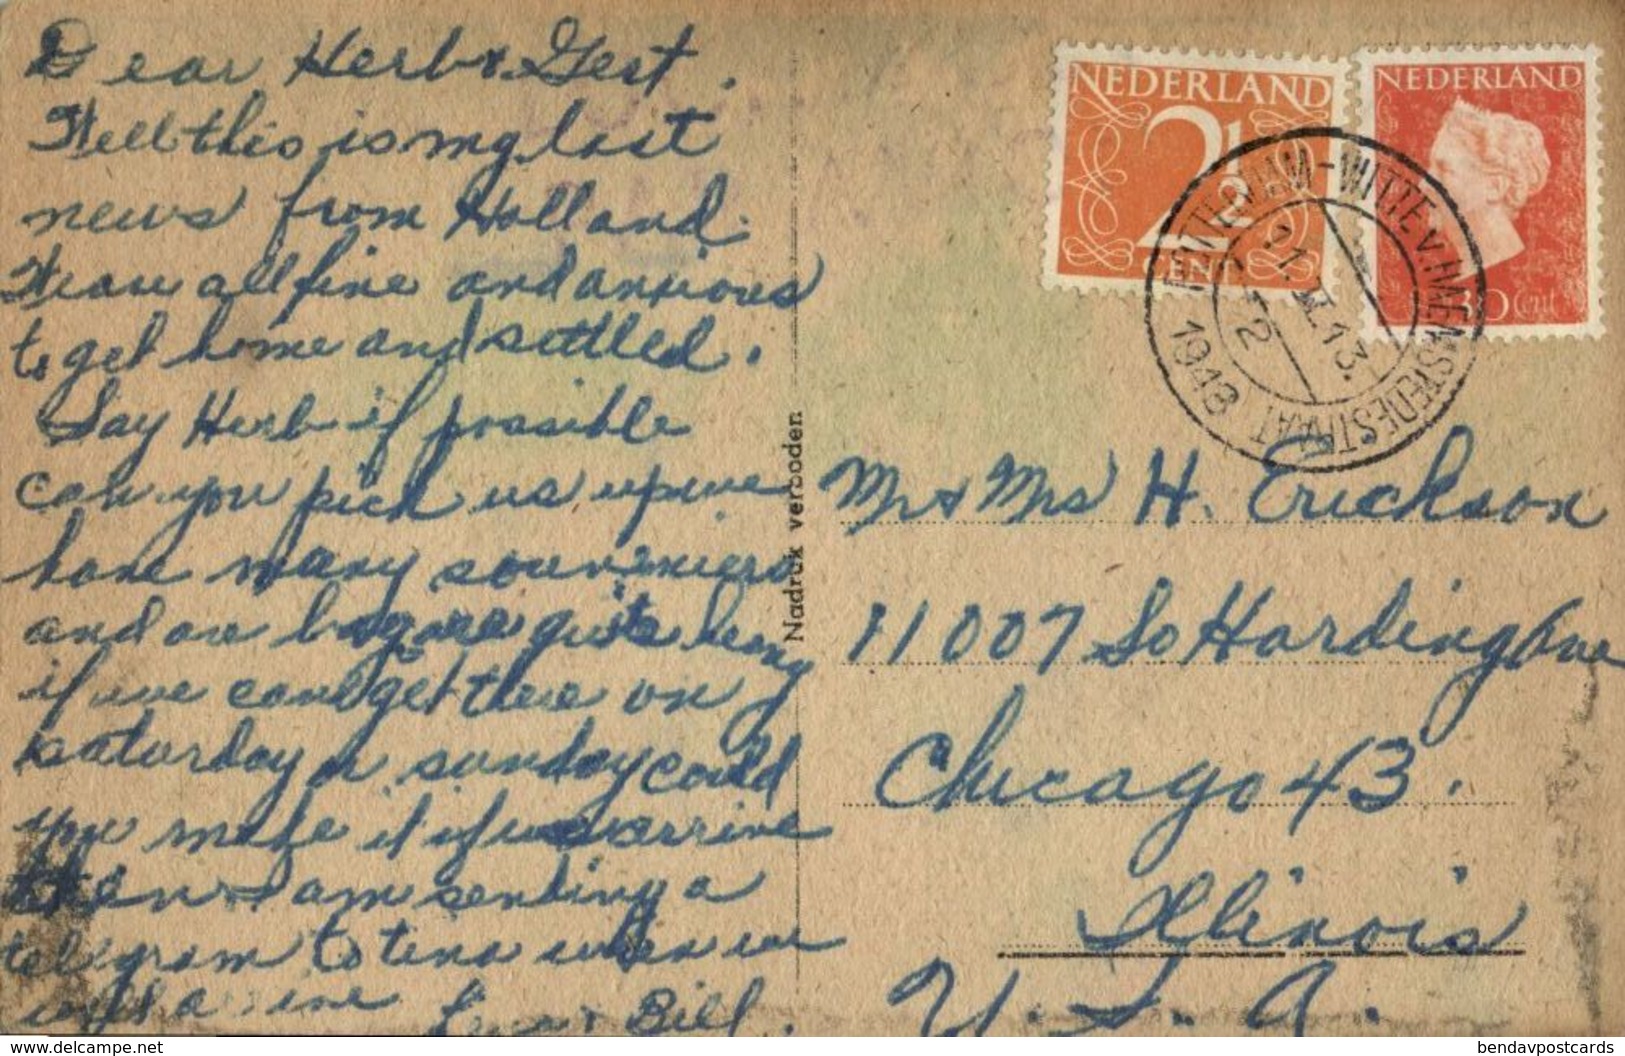 Dear Herb & Gert.
Well this is my last
news from Holland.
We are all fine and anxious
to get home and settled.
Say Herb if possible
can you pick us up we
have many souveniers
and are bagage quite heavy
if we could get there on
saturday or sunday could
you make it if we arrive
then I am sending a
telegram to tena when we
will arrive
Bill.
Nadruk verooden
NEDERLAND
2½
CENT
NEDERLAND
30 Cent
ROTTERDAM-WITTE V. HAEMSTEDESTRAAT
1948
Mr & Mrs H. Erickson
11007 So Harding Ave
Chicago 43.
Illinois
U.S.A.
www.delcampe.net
bendavpostcards